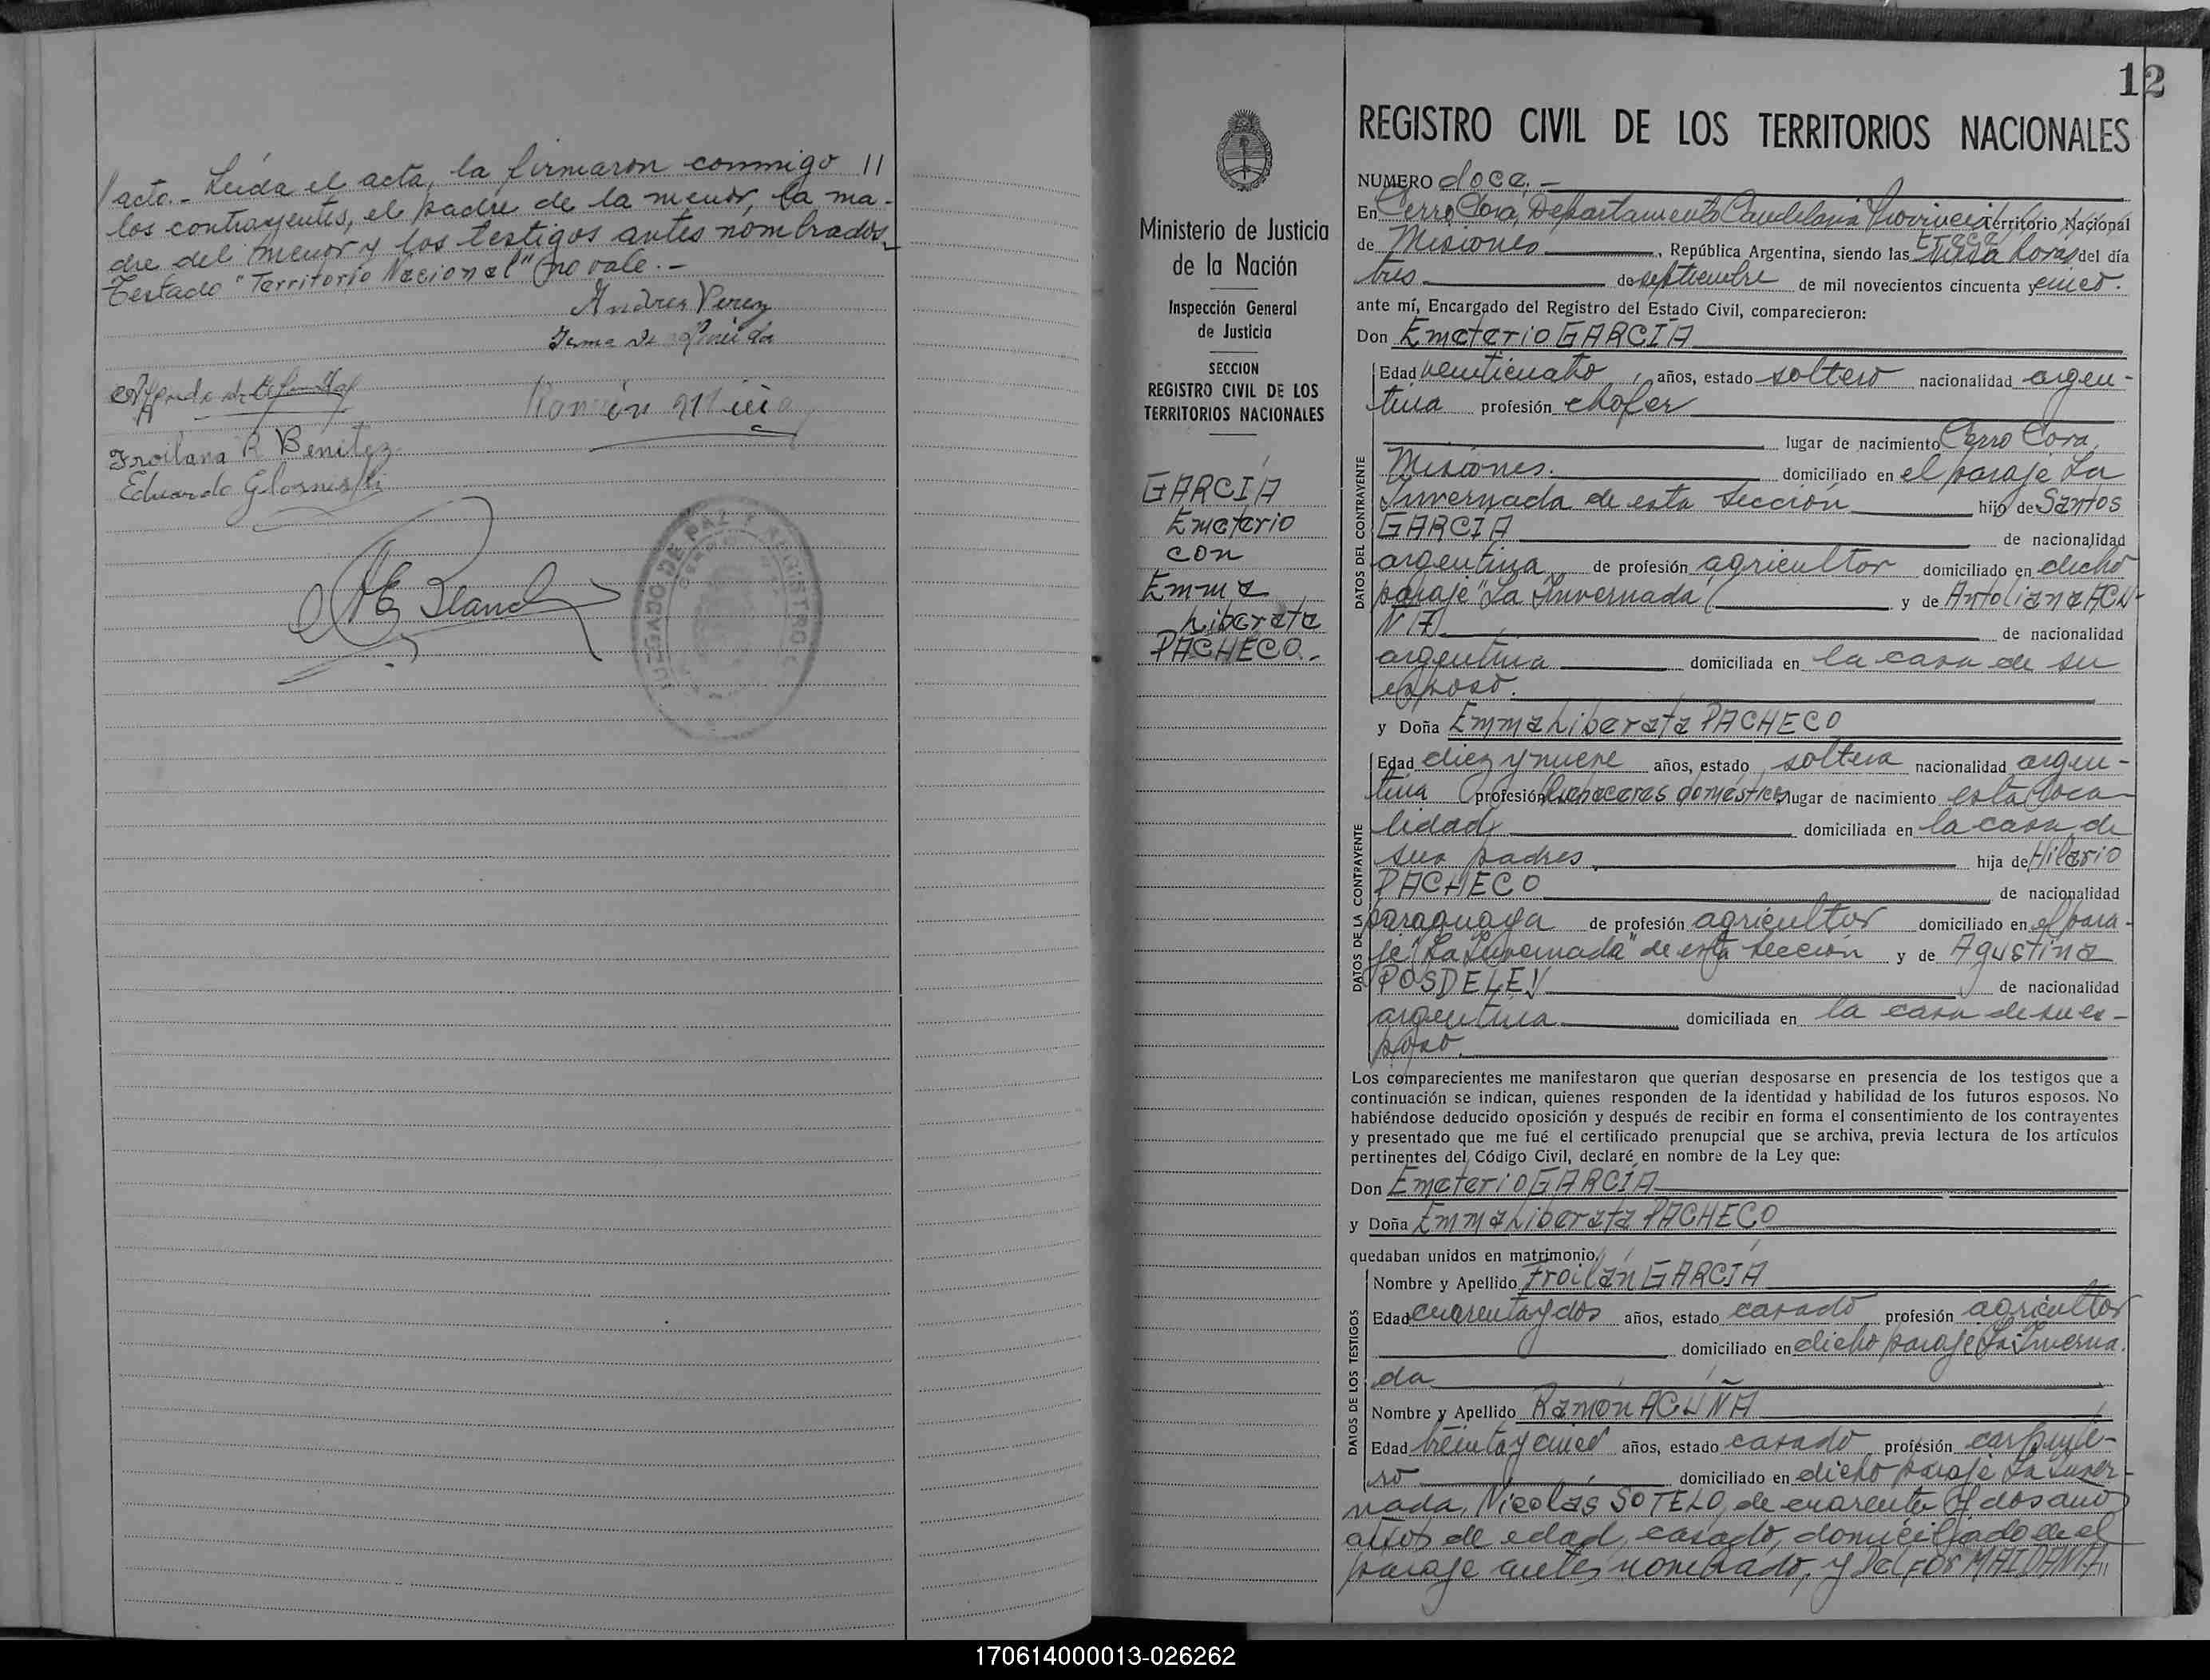 acto.- Leída el acta, la firmaron conmigo 11
los contrayentes, el padre de la menor, la ma-
dre del menor y los testigos antes nombrados
Testado "Territorio Nacional" no vale.-
Andres Perez
Froilana R Benitez
Eduardo
JUZGADO DE PAZ Y REGISTRO C
12
REGISTRO CIVIL DE LOS TERRITORIOS NACIONALES
Ministerio de Justicia
de la Nación
Inspección General
de Justicia
SECCION
REGISTRO CIVIL DE LOS
TERRITORIOS NACIONALES
GARCÍA
Emeterio
con
Emma
Liberata
PACHECO.-
NUMERO doce.-
En Cerro Corá, Departamento Candelaria Provincia Territorio Nacional
de Misiones, República Argentina, siendo las horas del día
tres de septiembre de mil novecientos cincuenta y cinco.
ante mí, Encargado del Registro del Estado Civil, comparecieron:
Don Emeterio GARCÍA
DATOS DEL CONTRAYENTE
Edad venticuatro, años, estado soltero nacionalidad argen-
tina profesión chofer
lugar de nacimiento Cerro Cora,
Misiones. domiciliado en el paraje La
Invernada de esta sección hijo de Santos
GARCIA de nacionalidad
argentina de profesión agricultor domiciliado en dicho
paraje "La Invernada y de Antoliana ACU-
ÑA de nacionalidad
argentina domiciliada en la casa de su
esposo.
y Doña Emma Liberata PACHECO
DATOS DE LA CONTRAYENTE
Edad diez y nueve años, estado soltera nacionalidad argen-
tina profesión quehaceres domésticos lugar de nacimiento esta loca-
lidad domiciliada en la casa de
sus padres hija de Hilario
PACHECO de nacionalidad
paraguaya de profesión agricultor domiciliado en el para-
je "La Invernada" de esta sección y de Agustina
POSDELEY de nacionalidad
argentina domiciliada en la casa de su es-
poso.
Los comparecientes me manifestaron que querían desposarse en presencia de los testigos que a
continuación se indican, quienes responden de la identidad y habilidad de los futuros esposos. No
habiéndose deducido oposición y después de recibir en forma el consentimiento de los contrayentes
y presentado que me fué el certificado prenupcial que se archiva, previa lectura de los artículos
pertinentes del Código Civil, declaré en nombre de la Ley que:
Don Emeterio GARCÍA
y Doña Emma Liberata PACHECO
quedaban unidos en matrimonio.
DATOS DE LOS TESTIGOS
Nombre y Apellido Froilán GARCÍA
Edad cuarenta y dos años, estado casado profesión agricultor
domiciliado en dicho paraje La Inverna
da
Nombre y Apellido Ramón ACUÑA
Edad treinta y cinco años, estado casado profesión carpinte-
ro domiciliado en dicho paraje La Inver-
nada, Nicolás SOTELO, de cuarenta y dos
años de edad, casado, domiciliado en el
paraje antes nombrado, y MAIDANA
170614000013-026262